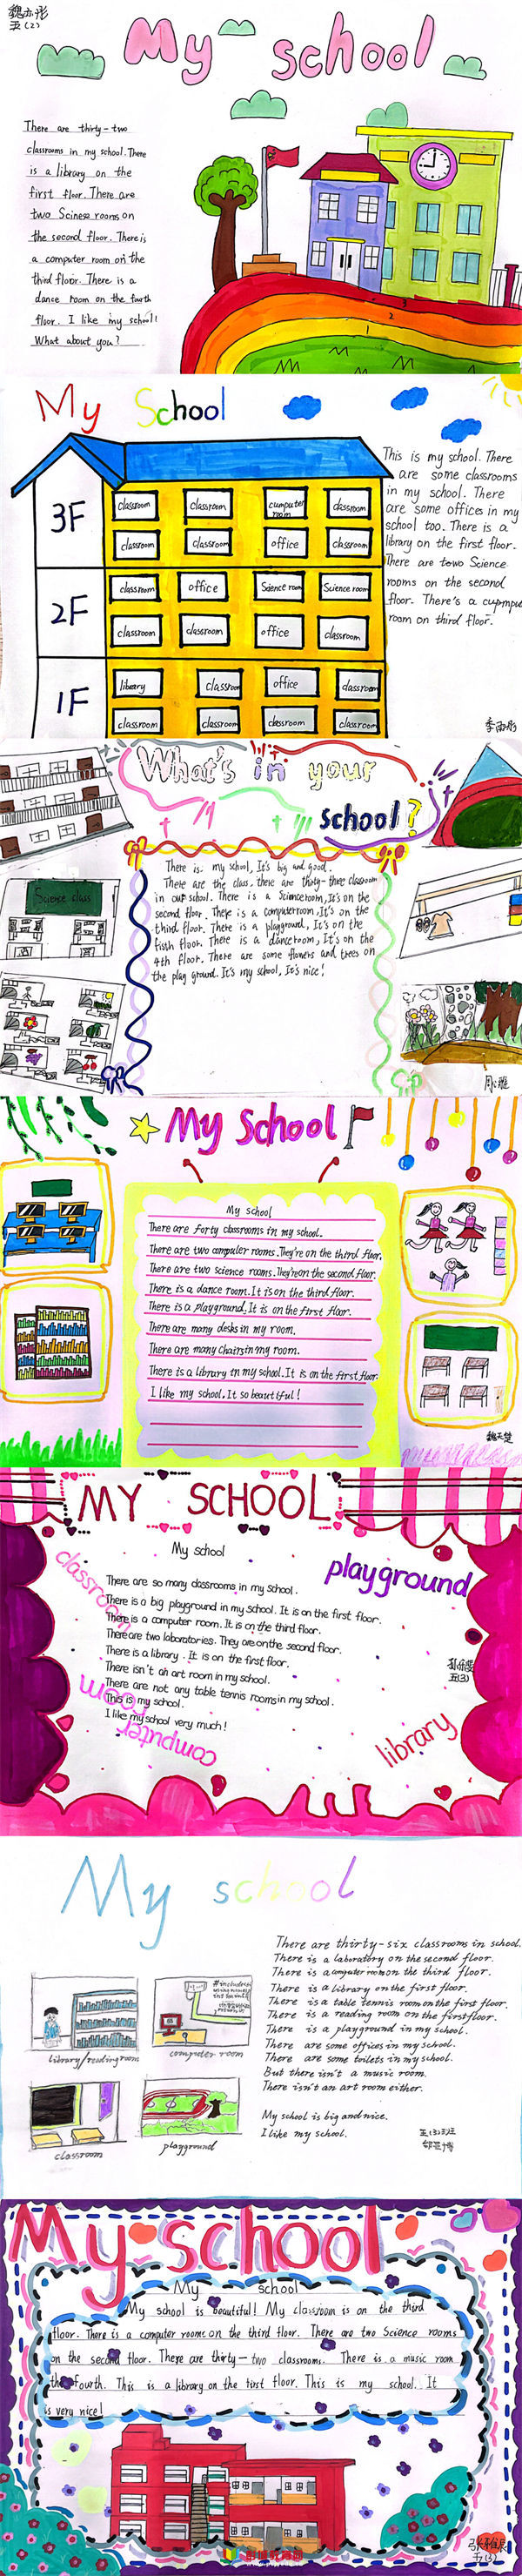 魏亦彤
五(2)
My school
There are thirty-two
classrooms in my school. There
is a library on the
first floor. There are
two Scinese rooms on
the second floor. There is
a computer room on the
third floor. There is a
dance room on the fourth
floor. I like my school!
What about you?
1
2
3
My School
3F
classroom
classroom
cumputer room
classroom
classroom
classroom
office
classroom
2F
classroom
office
Science room
Science room
classroom
classroom
office
classroom
1F
library
classroom
office
classroom
classroom
classroom
classroom
classroom
This is my school. There
are some classrooms
in my school. There
are some offices in my
school too. There is a
library on the first floor.
There are towo Science
rooms on the second
floor. There's a
room on third floor.
What's in your
school?
Science class
There is my school, It's big and good.
There are the class. there are thirty-three classroom
in our school. There is a Scienceroom, It's on the
second floor. There is a computerroom, It's on the
third floor. There is a playground, It's on the
fisth floor. There is a danceroom, It's on the
4th floor. There are some flowers and trees on
the play ground. It's my school, It's nice!
My School
My school
There are forty classrooms in my school.
There are two computer rooms. They're on the third floor.
There are two science rooms. They're on the second floor.
There is a dance room. It is on the third floor.
There is a playground. It is on the first floor.
There are many desks in my room.
There are many chairs in my room.
There is a library in my school. It is on the first floor.
I like my school. It so beautiful!
MY SCHOOL
My school
playground
classroom
There are so many classrooms in my school.
There is a big playground in my school. It is on the first floor.
There is a computer room. It is on the third floor.
There are two laboratories. They are on the second floor.
There is a library. It is on the first floor.
There isn't an art room in my school.
There are not any table tennis rooms in my school.
This is my school.
I like my school very much!
computer room
library
五(3)
My school
There are thirty-six classrooms in school.
There is a laboratory on the second floor.
There is a computer room on the third floor.
There is a library on the first floor.
There is a table tennis room on the first floor.
There is a reading room on the first floor.
There is a playground in my school.
There are some offices in my school.
There are some toilets in my school.
But there isn't a music room.
There isn't an art room either.
My school is big and nice.
I like my school.
library/reading room
computer room
classroom
playground
五(3)班
My school
My school
My school is beautiful! My classroom is on the third
floor. There is a computer roome on the third floor. There are two Science rooms
on the second floor. There are thirty-two classrooms. There is a music room
the fourth. This is a library on the first floor. This is my school. It
is very nice!